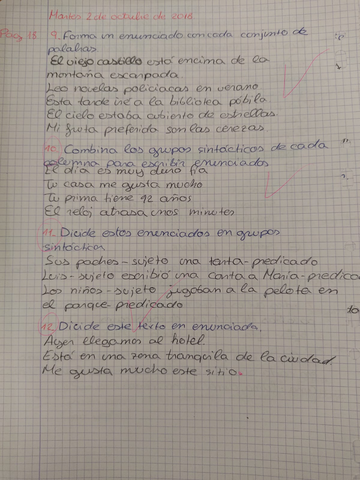 Martes 2 de octubre de 2018
Pág. 15 9. Forma un enunciado con cada conjunto de
palabras
El viejo castillo está encima de la
montaña escarpada
Leo novelas policíacas en verano
Esta tarde iré a la bibliotea públila
El cielo estaba cubiento de estrellas.
Mi fruta preferida son las cerezas.
10. Combina los grupos sintácticos de cada
columna para escribir enunciados
El día es muy
Tu casa me gusta mucho
Tu prima tiene 12 años
El reloj atrasa unos minutos
11. Dicide estos enunciados en grupos
sintácticos
Sus padres-sujeto una tarta-predicado
Luis-sujeto escribió una carta a María-predica
Los niños-sujeto jugaban a la pelota en
el parque-predicado
12. Dicide este texto en enunciada.
Ayer llegamos al hotel
Está en una zona tranquila de la ciudad
Me gusta mucho este sitio.